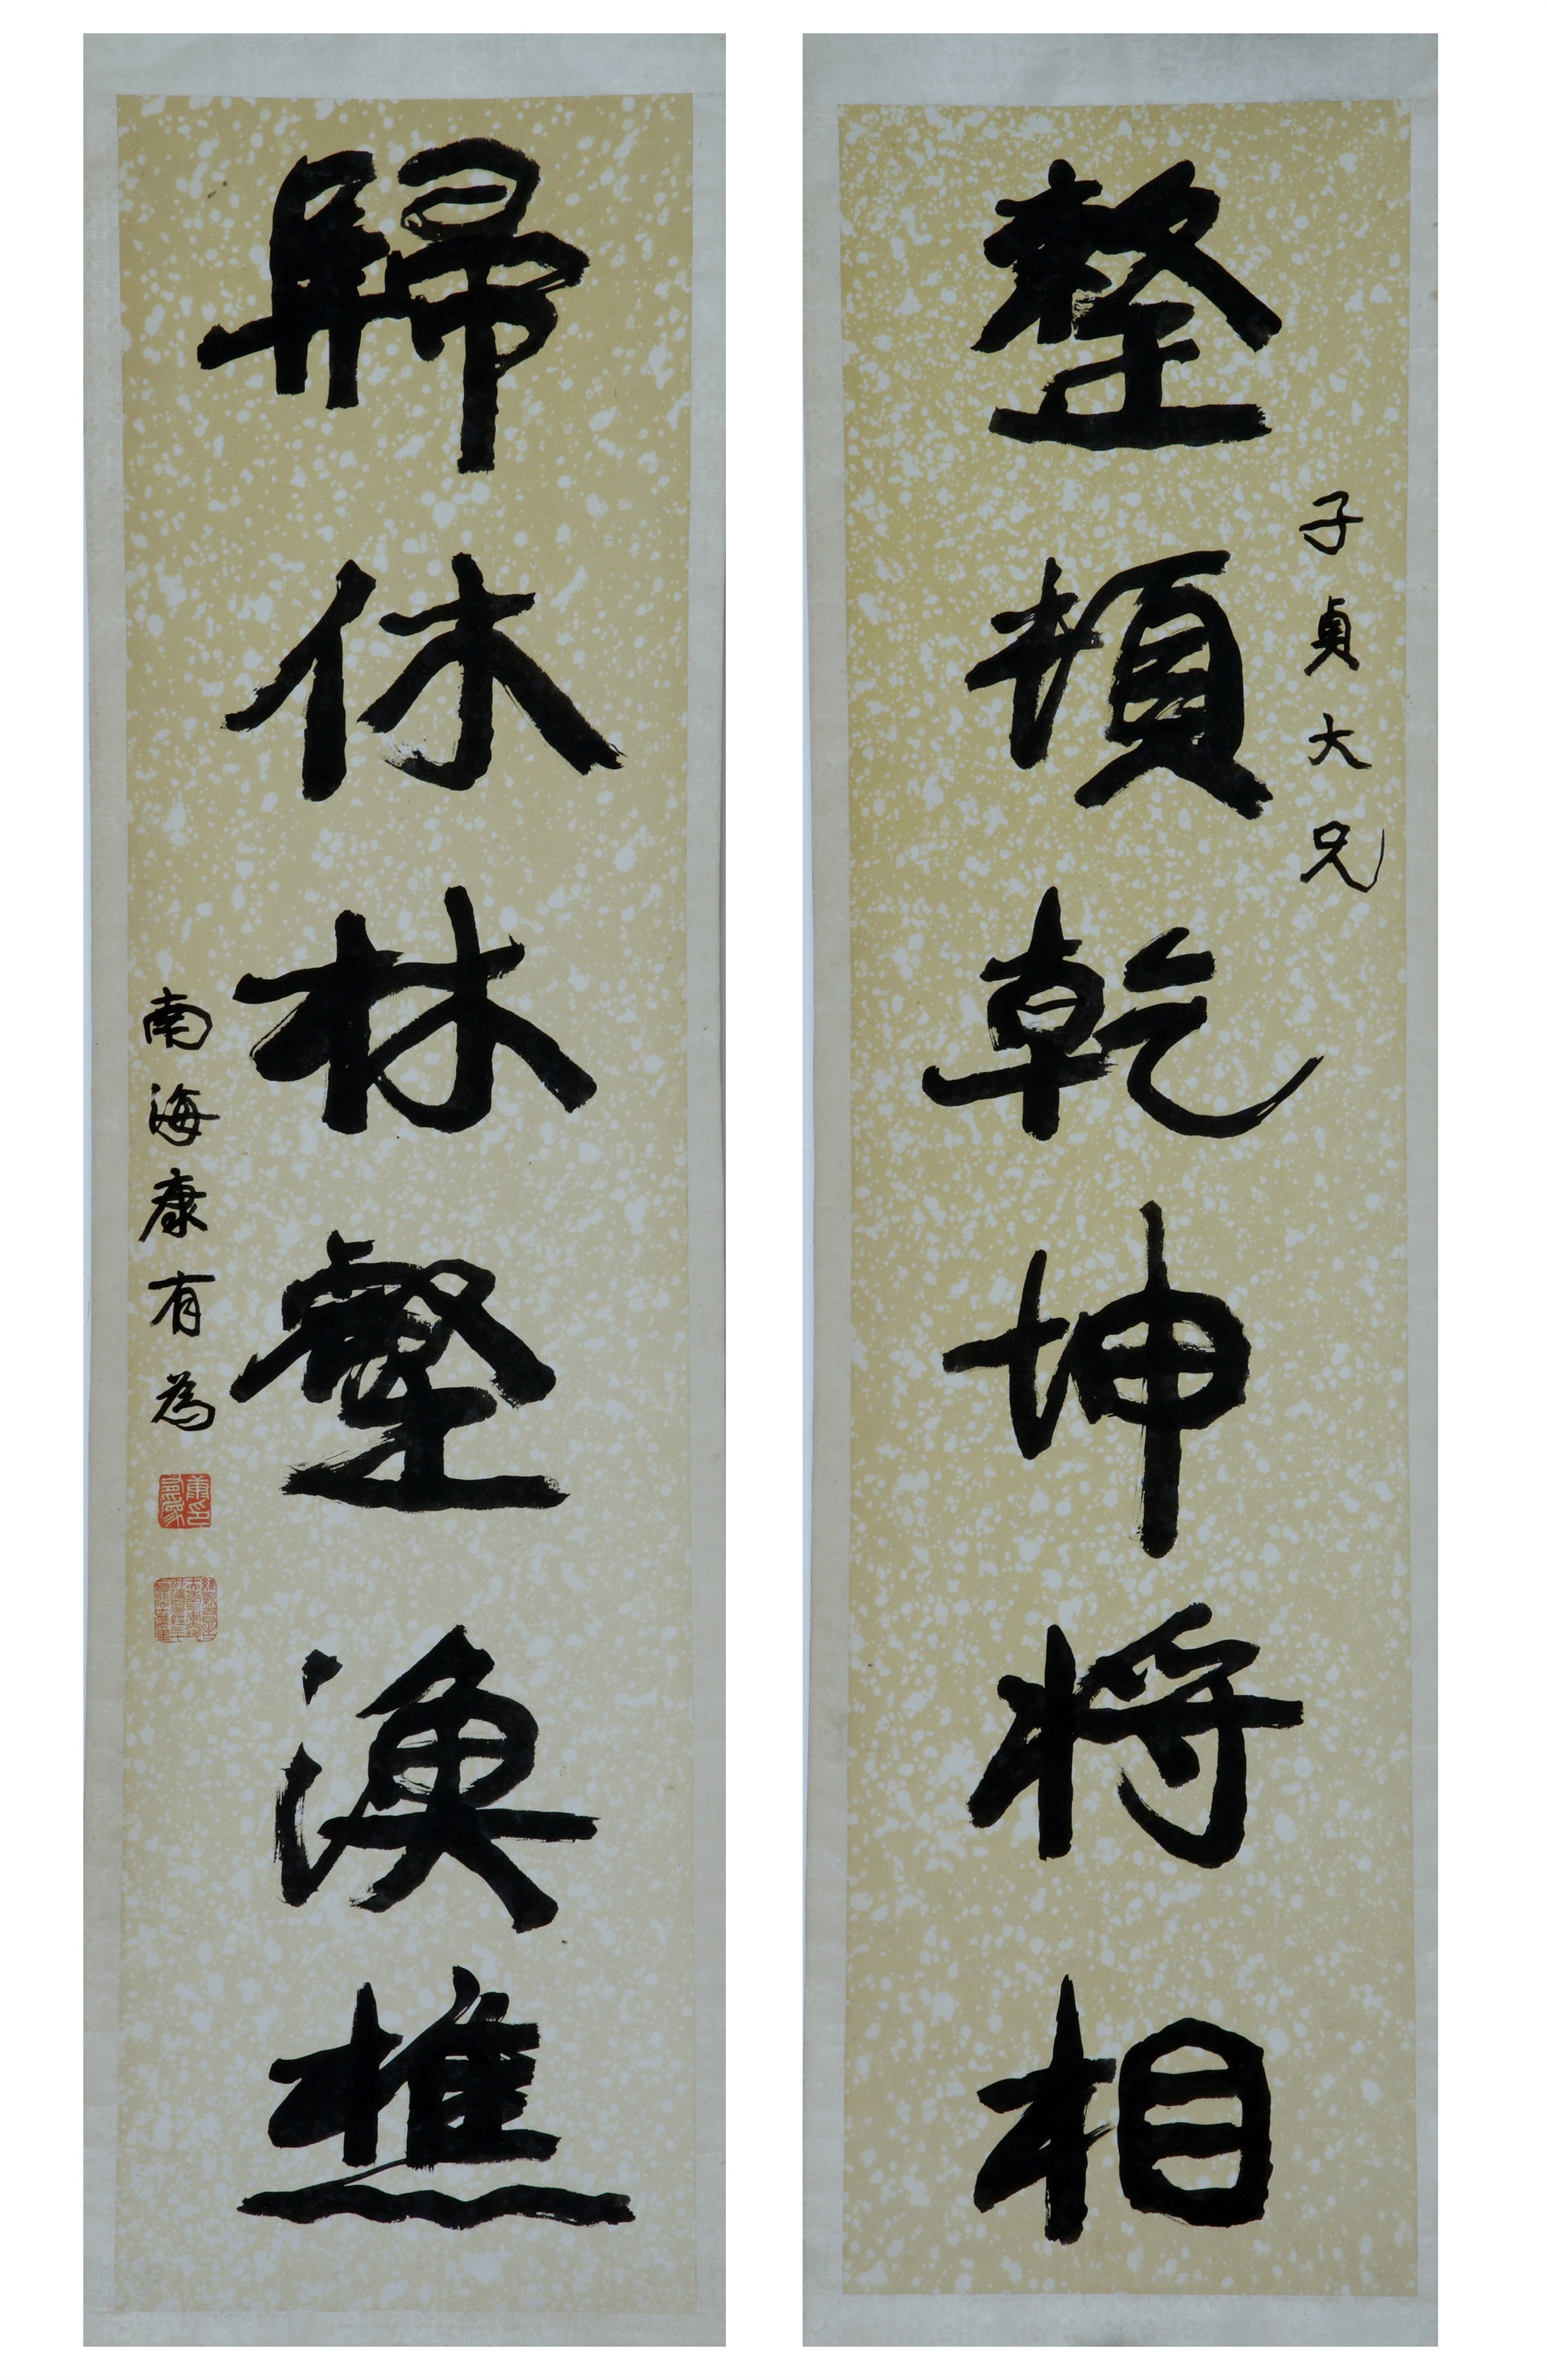 子貞大兄
整頓乾坤將相
歸休林壑漁樵
南海康有為